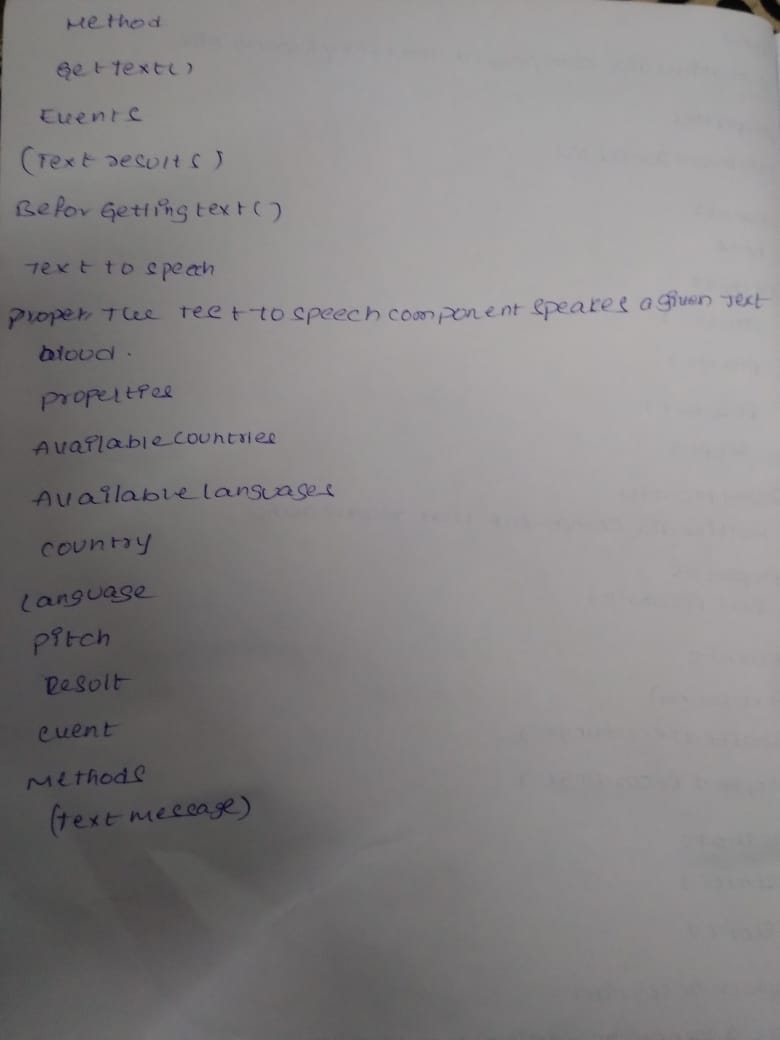 Method
Get text()
Events
(Text results)
Befor Getting text()
Text to speech
proper. The teet to speech component speakes a given text
aloud.
properties
Available countries
Available languages
country
Language
pitch
Result
event
Methods
(text message)